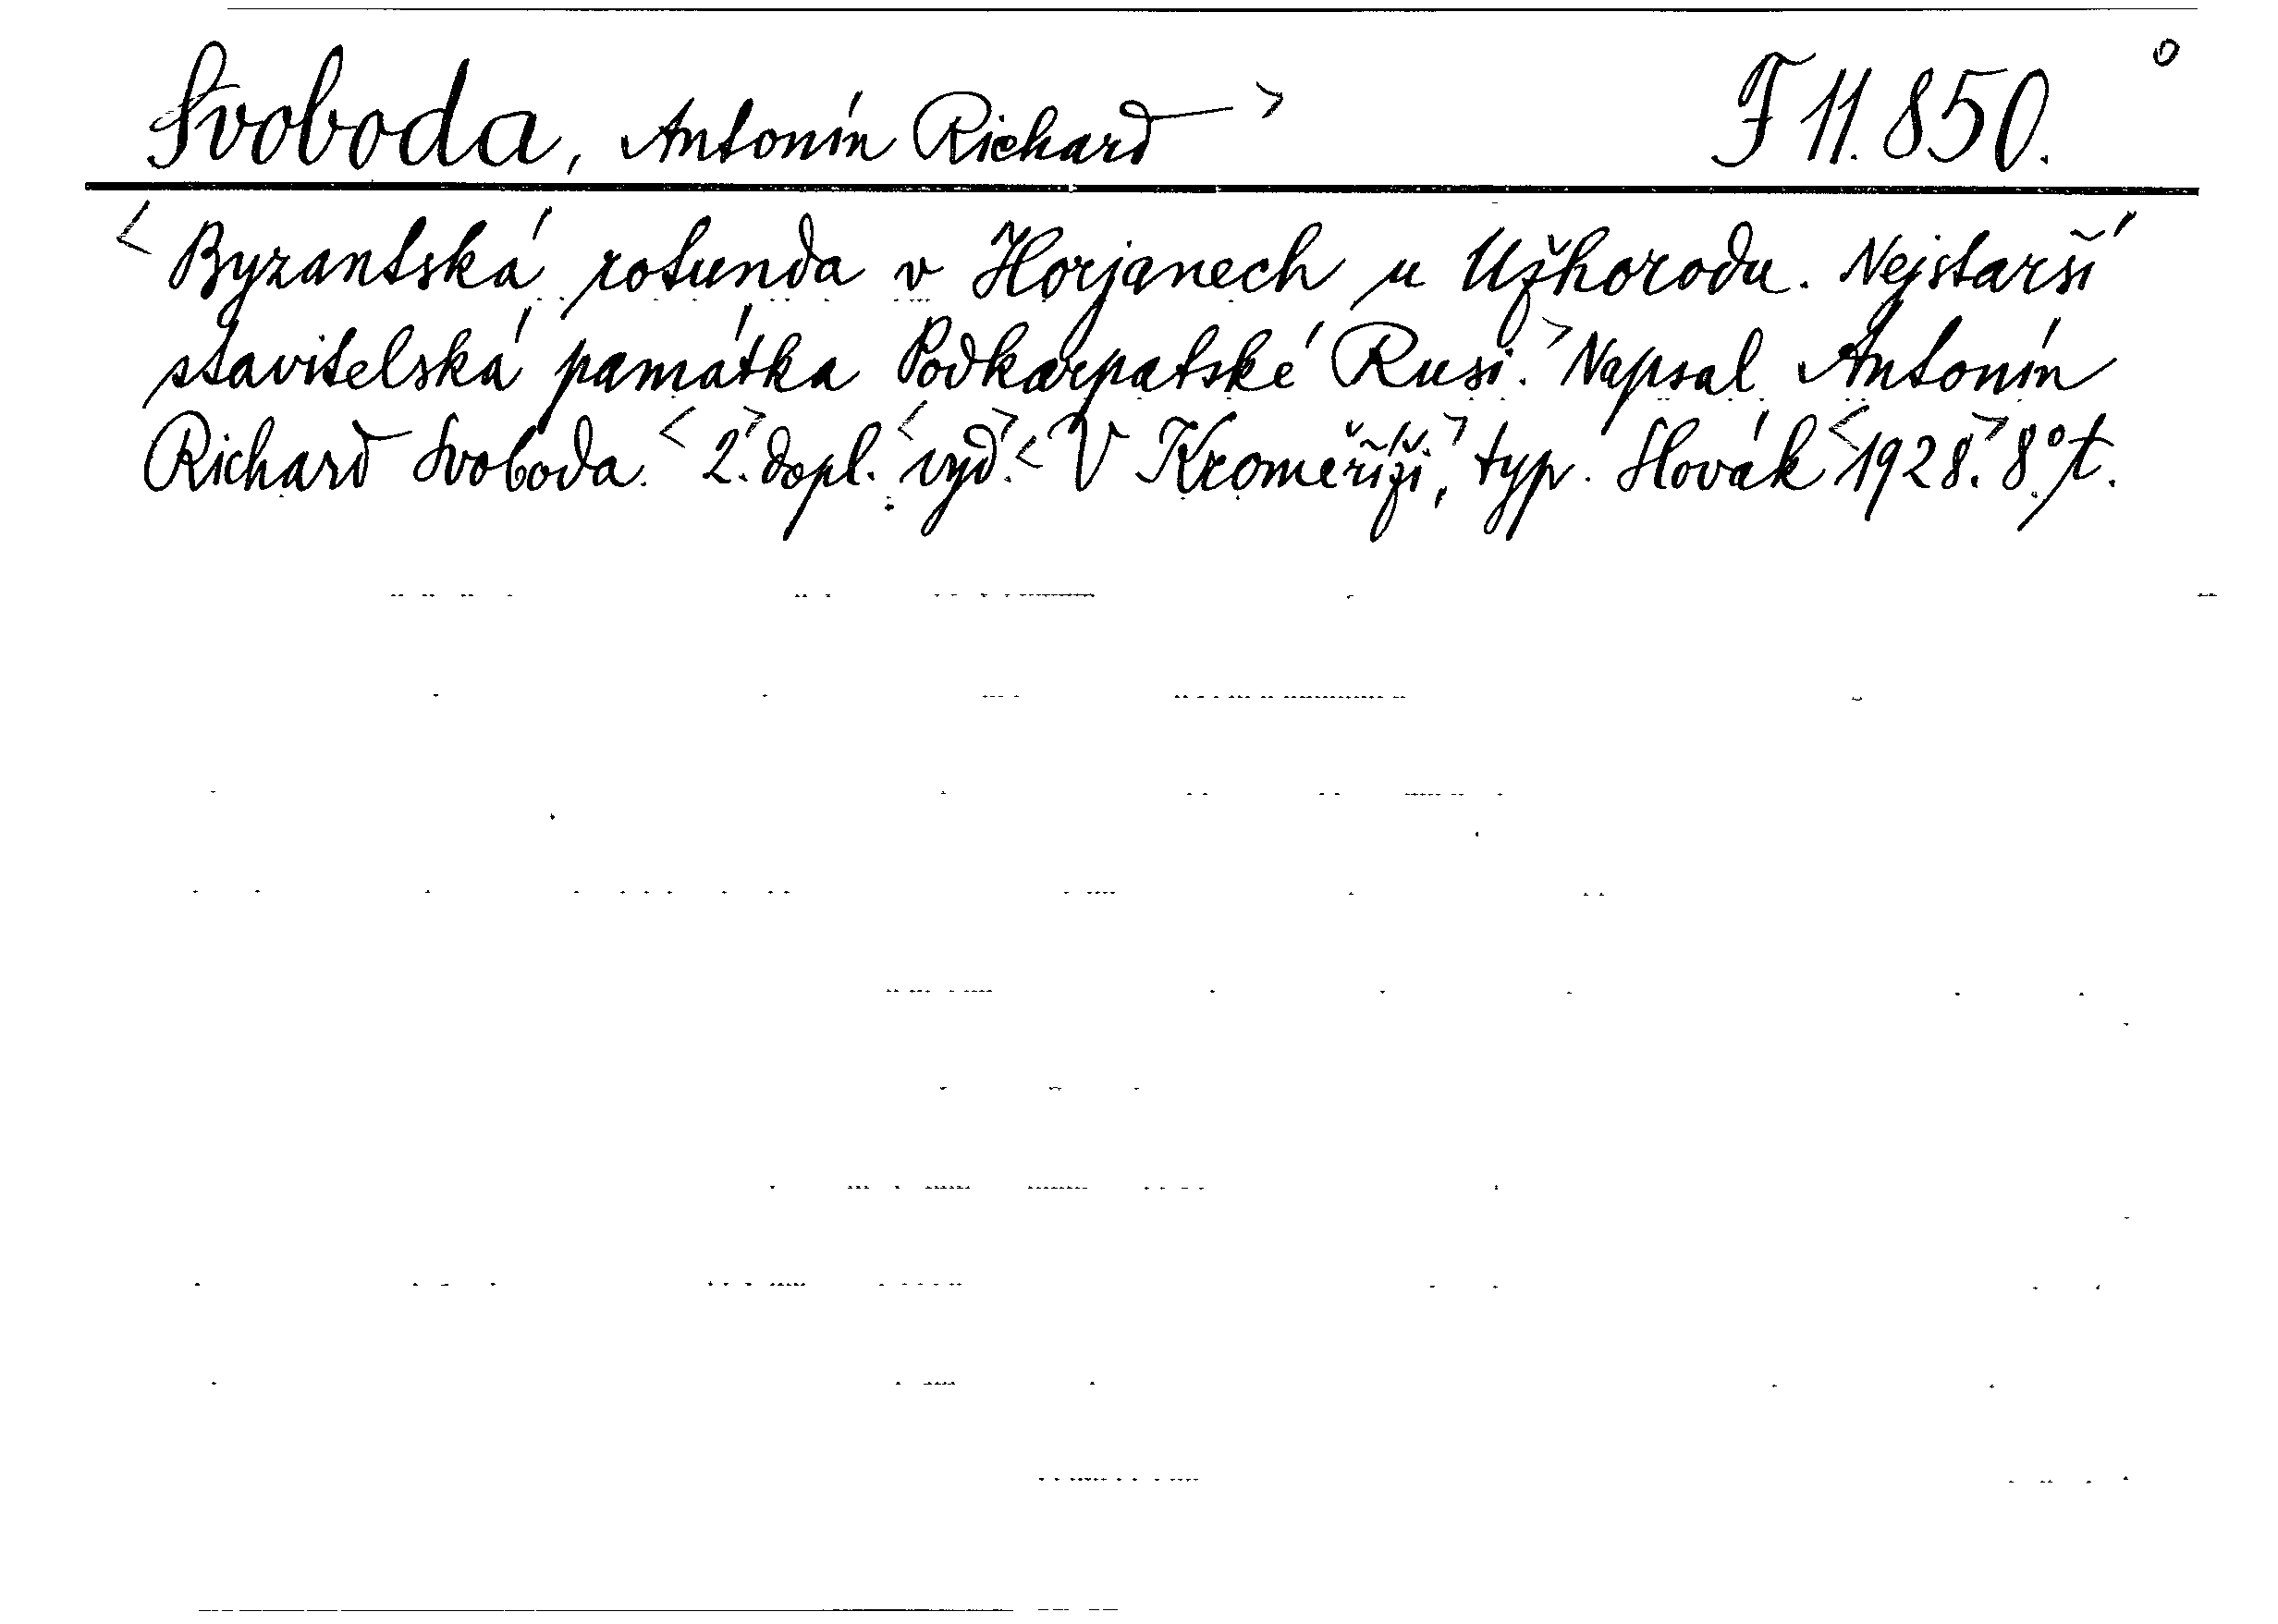 Svoboda, Antonín Richard > F 11.850. o
< Byzantská rotunda v Horjanech u Užhorodu. Nejstarší
stavitelská památka Podkarpatské Rusi. > Napsal Antonín
Richard Svoboda. < 2. > dopl. < vyd. > < V Kroměříži, > typ. Slovák < 1928. > 8° t.